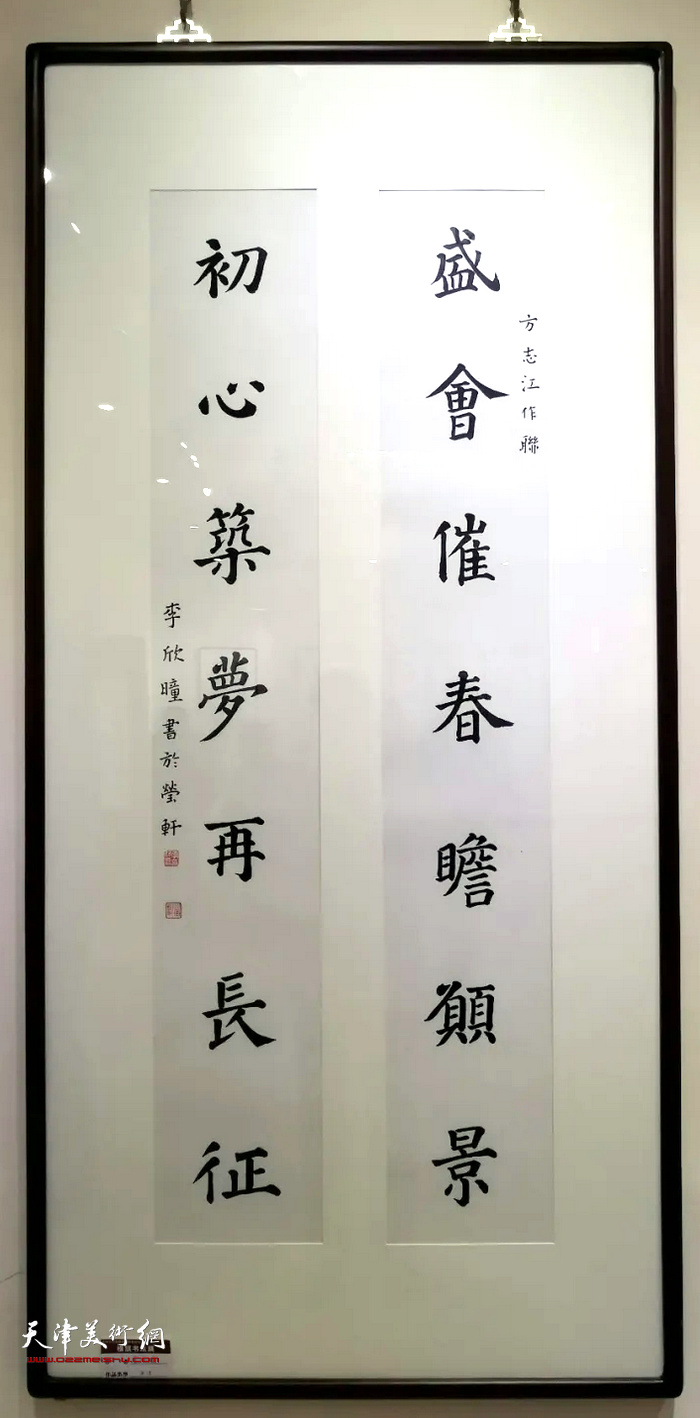 盛會催春瞻願景
方志江作聯
初心築夢再長征
李欣曈書於瑩軒
天津美術網